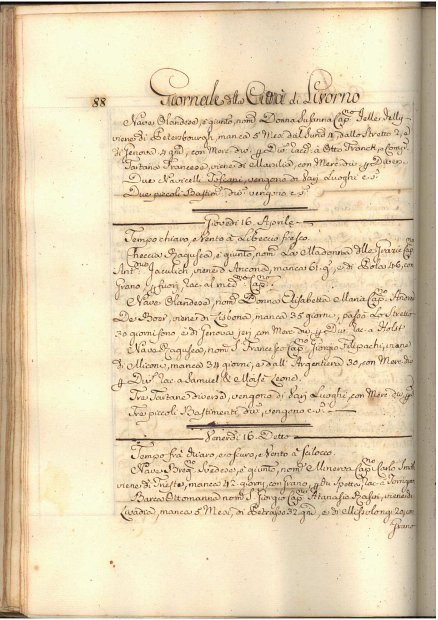 88 Giornale della Città di Livorno
Nave Olandese, è giunto, nom.ª Donna Susanna Cap.no Jelles Jelly
viene di Petersbourgh, manca 5 Mesi dal Sund 4, dallo Stretto 2, e
di Genova 4 g.ni, con Merc: div:
Tartana Francese, viene di Marsilia, con Merc: div:
Due Navicelli Toscani, vengono da Varj Luoghi e s:
Due piccoli Bastim.ti div: vengono e s:
Giovedì 16 Aprile
Tempo chiaro, e Vento à Libeccio fresco.
Checcia Ragusea, è giunto, nom.ª La Madonna delle Grazie Cap.no
Ant.º viene d'Ancona, manca 61 g.ni, e di Pola 46, con
Grano, p fuori, rac: al med.mo Cap.no
Nave Olandese, nom.ª Donna Elisabetta Maria Cap.no Andrea
De Boer, viene di Lisbona, manca 35 giorni, passò lo Stretto
30 giorni sono, e di Genova jeri, con Merc: div: rac: a
Nave Ragusea, nom.ª S. Francesco Cap.no Giorgio Filipachi, viene
di Micone, manca 34 giorni, e dall' Argentiera 30, con Merc: div:
p Div: rac: a Samuel & Moisè Leone.
Tre Tartane diverse, vengono di Varj Luoghi, con Merc: div:
Tre piccoli Bastimenti, div: vengono e s:
Venerdì 16 Detto
Tempo frà chiaro, e oscuro, e Vento à Scilocco.
Nave Svedese, è giunto, nom.ª Minerva Cap.no Carlo
viene di Trieste, manca 42 giorni, con Grano, rac: a
Barca Ottomanna nom.ª S. Giorgio Cap.no Atanasio viene di
manca 5 Mesi, di Petrasso 32 g.ni, e di Missolongi 20, con
Grano